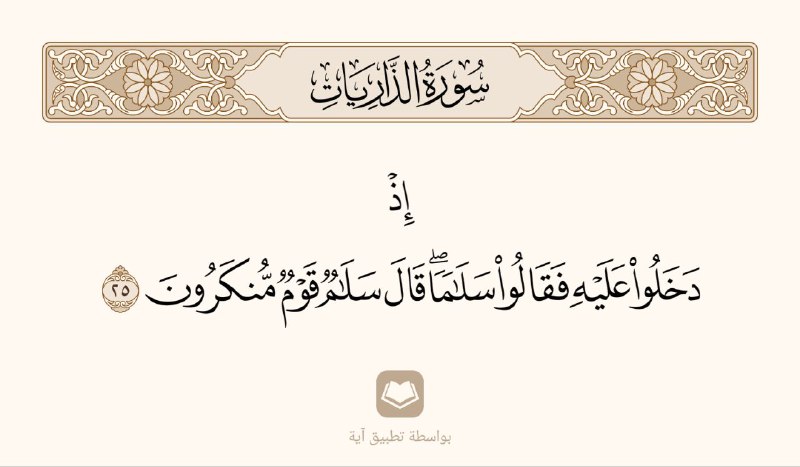 سُورَةُ الذَّارِيَاتِ
إِذۡ
دَخَلُواْ عَلَيۡهِ فَقَالُواْ سَلَٰمٗاۖ قَالَ سَلَٰمٞ قَوۡمٞ مُّنكَرُونَ ٢٥
بواسطة تطبيق آية